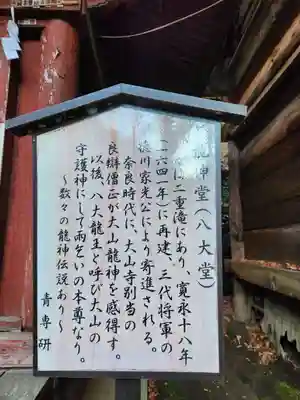 龍神堂(八大堂)
に二重滝にあり、寛永十八年
(一六四一年)に再建、三代将軍の
徳川家光公により寄進される。
奈良時代に、大山寺別当の
良辯僧正が大山龍神を感得す。
以後、八大龍王と呼び大山の
守護神にして雨乞いの本尊なり。
〜数々の龍神伝説あり〜
青専研